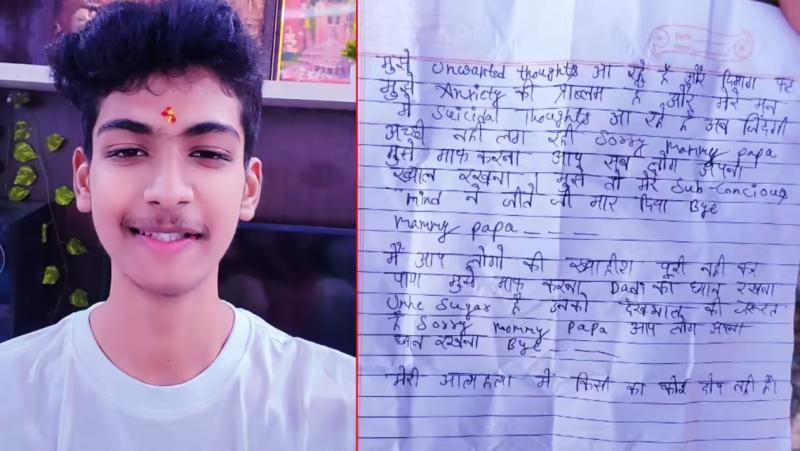 मुझे Unwanted thoughts आ रहे है और दिमाग
मुझे Anxiety की प्राब्लम है और मेरे मन
मे Suicidal Thoughts आ रहे है अब जिंदगी
अच्छी नहीं लग रही Sorry mommy papa
मुझे माफ करना आप सब लोग अपना
ख्याल रखना । मुझे तो मेरे Sub-Concious
mind ने जीते जी मार दिया Bye
mammy papa - - - -
मैं आप लोगो की ख्वाहीश पूरी नही कर
पाया मुझे माफ करना Dadi का ध्यान रखना
Unhe Sugar है उनको देखभाल की जरूरत
है Sorry mommy papa आप लोग अपना
ध्यान रखना Bye
मेरी आत्महत्या में किसी का कोई दोष नही है।